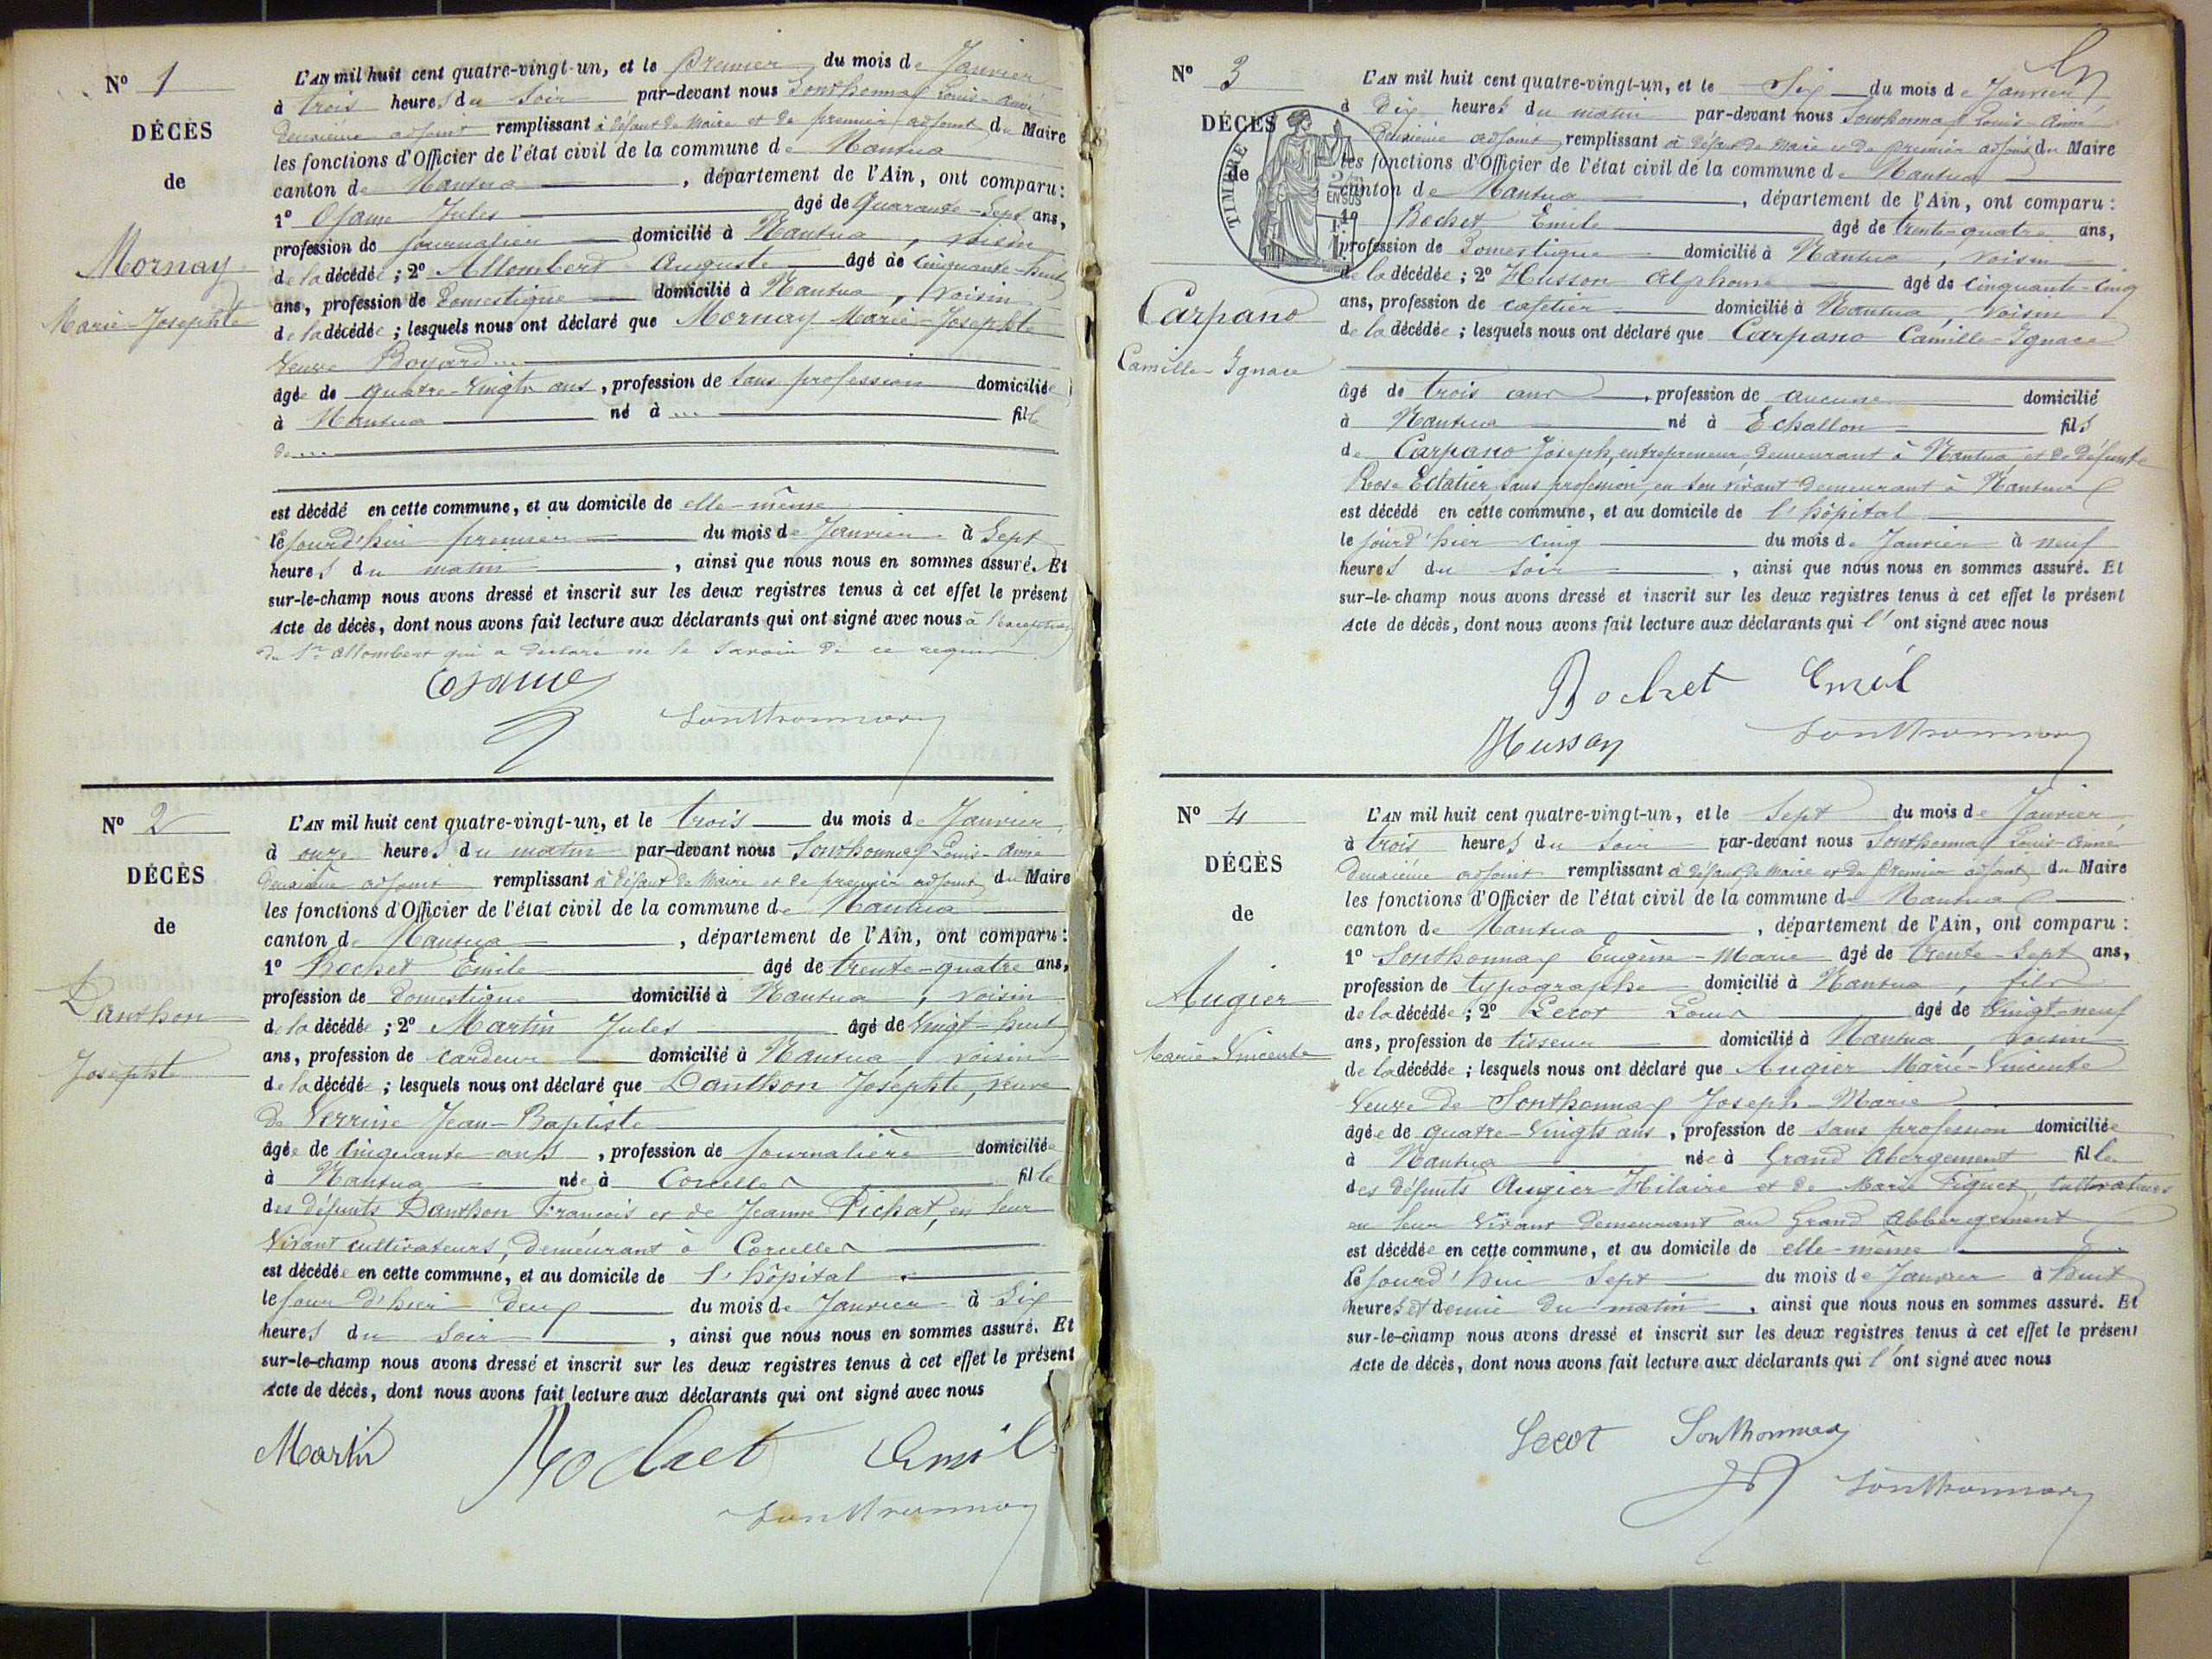 N° 1
DÉCÈS
de
Mornay
Marie-Josephte
L'AN mil huit cent quatre-vingt-un, et le premier du mois de Janvier
à trois heures du soir par-devant nous Sonthonnax Louis-Aimé
deuxième adjoint remplissant à défaut de Maire et de premier adjoint du Maire
les fonctions d'Officier de l'état civil de la commune de Nantua
canton de Nantua, département de l'Ain, ont comparu:
1° Ojame Jules âgé de Quarante-Sept ans,
profession de journalier domicilié à Nantua, voisin
de la décédée; 2° Allombert Auguste âgé de cinquante-huit
ans, profession de Domestique domicilié à Nantua, voisin
de la décédée; lesquels nous ont déclaré que Mornay Marie-Josephte
Veuve Boyard...
âgée de quatre-vingts ans, profession de sans profession domiciliée
à Nantua né à ... fille
de ...
est décédé en cette commune, et au domicile de elle-même
le jourd'hui premier du mois de Janvier à Sept
heures du matin, ainsi que nous nous en sommes assuré. Et
sur-le-champ nous avons dressé et inscrit sur les deux registres tenus à cet effet le présent
Acte de décès, dont nous avons fait lecture aux déclarants qui ont signé avec nous à l'exception
du Sr Allombert qui a déclaré ne le savoir de ce requis
Ojame
Sonthonnax
N° 2
DÉCÈS
de
Danthon
Josephte
L'AN mil huit cent quatre-vingt-un, et le trois du mois de Janvier
à onze heures du matin par-devant nous Sonthonnax Louis-Aimé
deuxième adjoint remplissant à défaut de Maire et de premier adjoint du Maire
les fonctions d'Officier de l'état civil de la commune de Nantua
canton de Nantua, département de l'Ain, ont comparu:
1° Bochet Emile âgé de trente-quatre ans,
profession de Domestique domicilié à Nantua, voisin
de la décédée; 2° Martin Jules âgé de vingt-huit
ans, profession de cardeur domicilié à Nantua, voisin
de la décédée; lesquels nous ont déclaré que Danthon Josephte, veuve
de Verrine Jean-Baptiste
âgée de cinquante ans, profession de journalière domiciliée
à Nantua née à Corcelles fille
des défunts Danthon François et de Jeanne Pichat, en leur
vivant cultivateurs, demeurant à Corcelles
est décédée en cette commune, et au domicile de l'hôpital
le jour d'hier deux du mois de Janvier à Six
heures du soir, ainsi que nous nous en sommes assuré. Et
sur-le-champ nous avons dressé et inscrit sur les deux registres tenus à cet effet le présent
Acte de décès, dont nous avons fait lecture aux déclarants qui ont signé avec nous
Martin Bochet Emil
Sonthonnax
N° 3
DÉCÈS
de
TIMBRE
EN SUS
Carpano
Camille-Ignace
L'AN mil huit cent quatre-vingt-un, et le Six du mois de Janvier
à Dix heures du matin par-devant nous Sonthonnax Louis-Aimé
deuxième adjoint remplissant à défaut de Maire et de premier adjoint du Maire
les fonctions d'Officier de l'état civil de la commune de Nantua
canton de Nantua, département de l'Ain, ont comparu:
1° Bochet Emile âgé de trente-quatre ans,
profession de Domestique domicilié à Nantua, voisin
de la décédée; 2° Husson Alphonse âgé de cinquante-cinq
ans, profession de cafetier domicilié à Nantua, voisin
de la décédée; lesquels nous ont déclaré que Carpano Camille-Ignace
âgé de trois ans, profession de aucune domicilié
à Nantua né à Echallon fils
de Carpano Joseph, entrepreneur, demeurant à Nantua et de défunte
Rose Eclatier, sans profession, en son vivant demeurant à Nantua
est décédé en cette commune, et au domicile de l'hôpital
le jourd'hier cinq du mois de Janvier à neuf
heures du soir, ainsi que nous nous en sommes assuré. Et
sur-le-champ nous avons dressé et inscrit sur les deux registres tenus à cet effet le présent
Acte de décès, dont nous avons fait lecture aux déclarants qui l'ont signé avec nous
Bochet Emil
Husson Sonthonnax
N° 4
DÉCÈS
de
Augier
Marie-Vincente
L'AN mil huit cent quatre-vingt-un, et le Sept du mois de Janvier
à trois heures du soir par-devant nous Sonthonnax Louis-Aimé
deuxième adjoint remplissant à défaut de Maire et de Premier adjoint du Maire
les fonctions d'Officier de l'état civil de la commune de Nantua
canton de Nantua, département de l'Ain, ont comparu:
1° Sonthonnax Eugène-Marie âgé de trente-sept ans,
profession de typographe domicilié à Nantua, fils
de la décédée; 2° Lecot Louis âgé de vingt-neuf
ans, profession de tisseur domicilié à Nantua, voisin
de la décédée; lesquels nous ont déclaré que Augier Marie-Vincente
Veuve de Sonthonnax Joseph-Marie
âgée de quatre-vingts ans, profession de sans profession domiciliée
à Nantua née à Grand Abergement fille
des défunts Augier Hilaire et de Marie Figuet, cultivateurs
en leur vivant demeurant au Grand Abbergement
est décédée en cette commune, et au domicile de elle-même
le jourd'hui Sept du mois de Janvier à huit
heures et demie du matin, ainsi que nous nous en sommes assuré. Et
sur-le-champ nous avons dressé et inscrit sur les deux registres tenus à cet effet le présent
Acte de décès, dont nous avons fait lecture aux déclarants qui l'ont signé avec nous
Lecot Sonthonnax
Sonthonnax